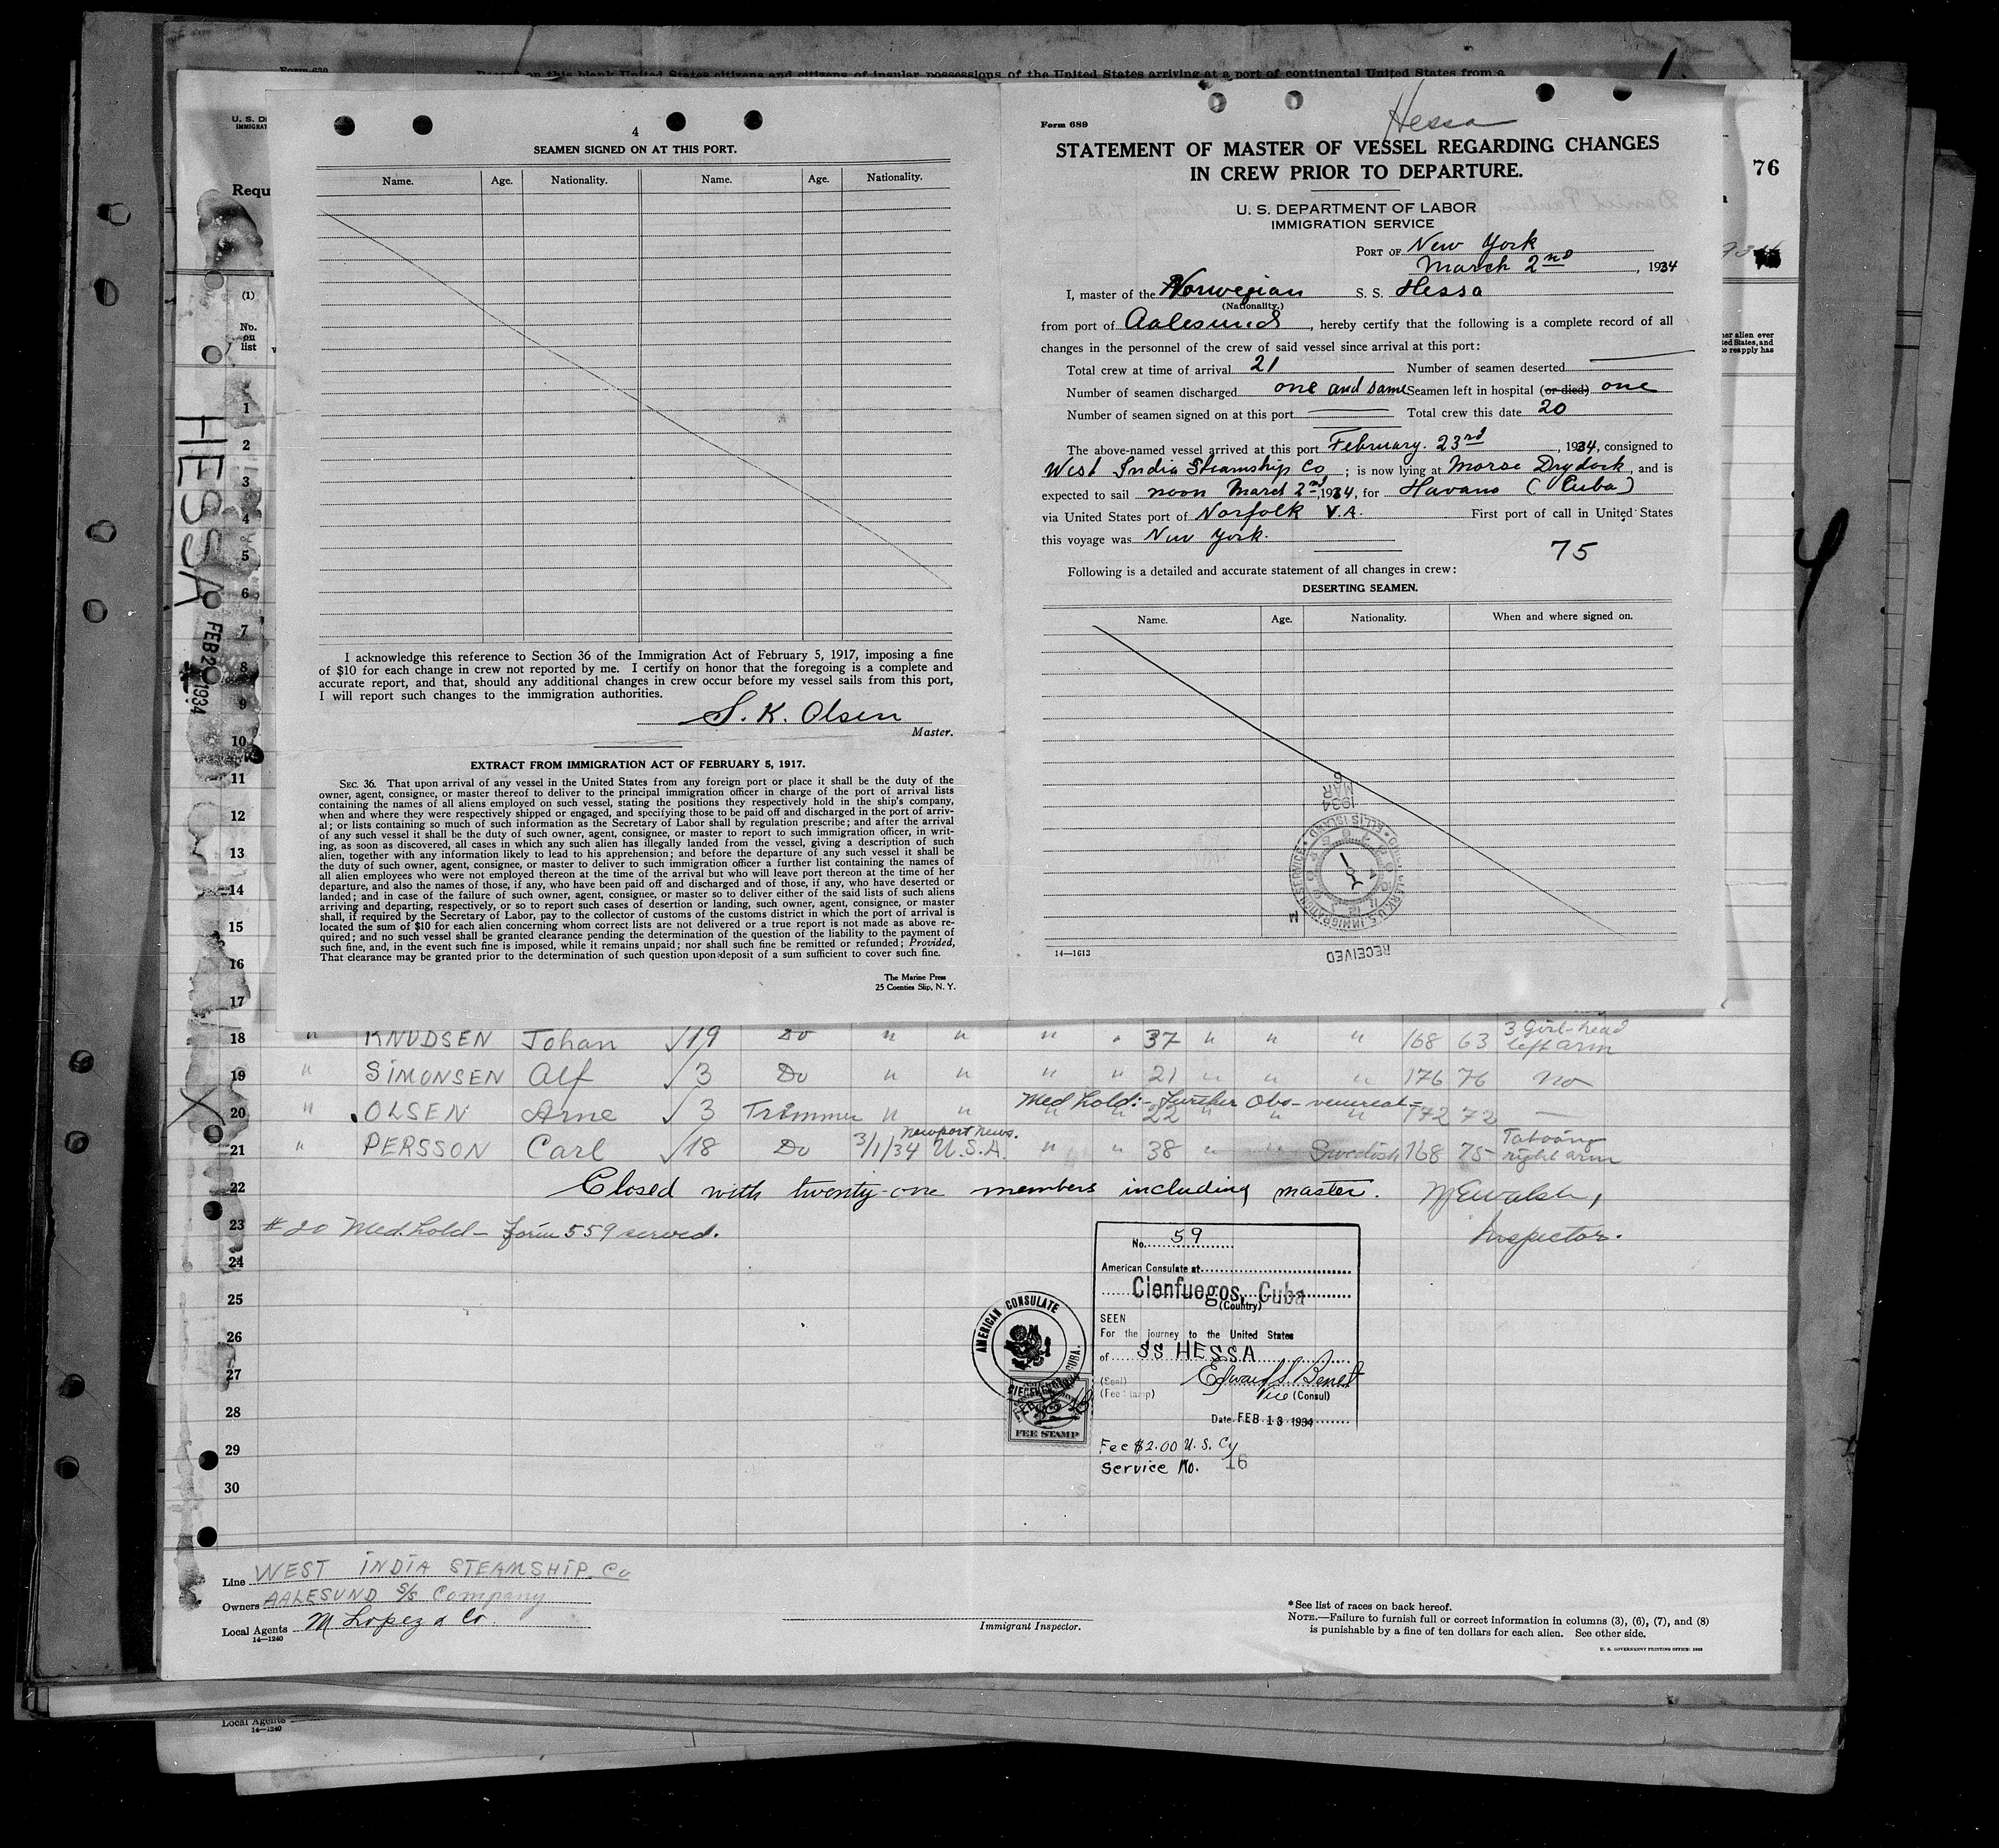 Form 630
Record on this blank United States citizens and citizens of insular possessions of the United States arriving at a port of continental United States from a
U. S. D
IMMIGRAT
Requ
(1)
No.
on
list
76
ner alien ever
ted States, and
to reapply has
HESSA
FEB 2 1934
4
SEAMEN SIGNED ON AT THIS PORT.
Name. Age. Nationality. Name. Age. Nationality.
I acknowledge this reference to Section 36 of the Immigration Act of February 5, 1917, imposing a fine
of $10 for each change in crew not reported by me. I certify on honor that the foregoing is a complete and
accurate report, and that, should any additional changes in crew occur before my vessel sails from this port,
I will report such changes to the immigration authorities.
S. K. Olsen
Master.
EXTRACT FROM IMMIGRATION ACT OF FEBRUARY 5, 1917.
SEC. 36. That upon arrival of any vessel in the United States from any foreign port or place it shall be the duty of the
owner, agent, consignee, or master thereof to deliver to the principal immigration officer in charge of the port of arrival lists
containing the names of all aliens employed on such vessel, stating the positions they respectively hold in the ship's company,
when and where they were respectively shipped or engaged, and specifying those to be paid off and discharged in the port of arriv-
al; or lists containing so much of such information as the Secretary of Labor shall by regulation prescribe; and after the arrival
of any such vessel it shall be the duty of such owner, agent, consignee, or master to report to such immigration officer, in writ-
ing, as soon as discovered, all cases in which any such alien has illegally landed from the vessel, giving a description of such
alien, together with any information likely to lead to his apprehension; and before the departure of any such vessel it shall be
the duty of such owner, agent, consignee, or master to deliver to such immigration officer a further list containing the names of
all alien employees who were not employed thereon at the time of the arrival but who will leave port thereon at the time of her
departure, and also the names of those, if any, who have been paid off and discharged and of those, if any, who have deserted or
landed; and in case of the failure of such owner, agent, consignee, or master so to deliver either of the said lists of such aliens
arriving and departing, respectively, or so to report such cases of desertion or landing, such owner, agent, consignee, or master
shall, if required by the Secretary of Labor, pay to the collector of customs of the customs district in which the port of arrival is
located the sum of $10 for each alien concerning whom correct lists are not delivered or a true report is not made as above re-
quired; and no such vessel shall be granted clearance pending the determination of the question of the liability to the payment of
such fine, and, in the event such fine is imposed, while it remains unpaid; nor shall such fine be remitted or refunded; Provided,
That clearance may be granted prior to the determination of such question upon deposit of a sum sufficient to cover such fine.
The Marine Press
25 Coenties Slip, N. Y.
Hessa
Form 689
STATEMENT OF MASTER OF VESSEL REGARDING CHANGES
IN CREW PRIOR TO DEPARTURE.
U. S. DEPARTMENT OF LABOR
IMMIGRATION SERVICE
PORT OF New York
March 2nd, 1934
I, master of the Norwegian S. S. Hessa
(Nationality.)
from port of Aalesund, hereby certify that the following is a complete record of all
changes in the personnel of the crew of said vessel since arrival at this port:
Total crew at time of arrival 21 Number of seamen deserted
Number of seamen discharged one and same Seamen left in hospital (or died) one
Number of seamen signed on at this port Total crew this date 20
The above-named vessel arrived at this port February. 23rd, 1934, consigned to
West India Steamship Co; is now lying at Morse Drydock, and is
expected to sail noon March 2nd, 1934, for Havana (Cuba)
via United States port of Norfolk V.A. First port of call in United States
this voyage was New York.
75
Following is a detailed and accurate statement of all changes in crew:
DESERTING SEAMEN.
Name. Age. Nationality. When and where signed on.
6
MAR
1934
U.S. IMMIGRATION SERVICE • ELLIS ISLAND
M
RECEIVED
14—1613
1
2
3
4
5
6
7
8
9
10
11
12
13
14
15
16
17
18 " KNUDSEN Johan √19 Do " " " " 37 " " " 168 63 3 Girl-head left arm
19 " SIMONSEN Alf √3 Do " " " " 21 " " " 176 76 no
Med hold:- further Obs- venereal-
20 " OLSEN Arne √3 Trimmer " " " " 22 " " " 172 72 —
21 " PERSSON Carl √18 Do 3/1/34 Newport News. U.S.A. " " 38 " " Swedish 168 75 Tatooing right arm
22 Closed with twenty-one members including master. M E Walsh,
23 # 20 Med. hold - form 559 served. Inspector.
24
25
26
27
28
29
30
No. 59
American Consulate at
Cienfuegos, Cuba
(Country)
SEEN
For the journey to the United States
of SS HESSA
(Seal) Edward S. Benet
(Fee stamp) Vice (Consul)
Date FEB 13 1934
Fee $2.00 U. S. Cy
Service No. 16
AMERICAN CONSULATE
CIENFUEGOS, CUBA.
FEE STAMP
Line WEST INDIA STEAMSHIP Co
Owners AALESUND S/S Company
Local Agents M Lopez & Co.
14—1240
Immigrant Inspector.
*See list of races on back hereof.
NOTE.—Failure to furnish full or correct information in columns (3), (6), (7), and (8)
is punishable by a fine of ten dollars for each alien. See other side.
Local Agents
14—1240